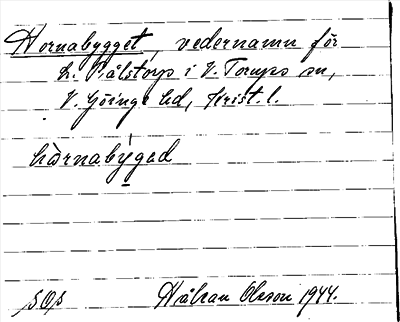 Hornabygget, vedernamn för
L. Pålstorp i V. Torups sn,
V. Göinge hd, Krist. l.
hò̀rnabýgad
Håkan Olsson 1944.